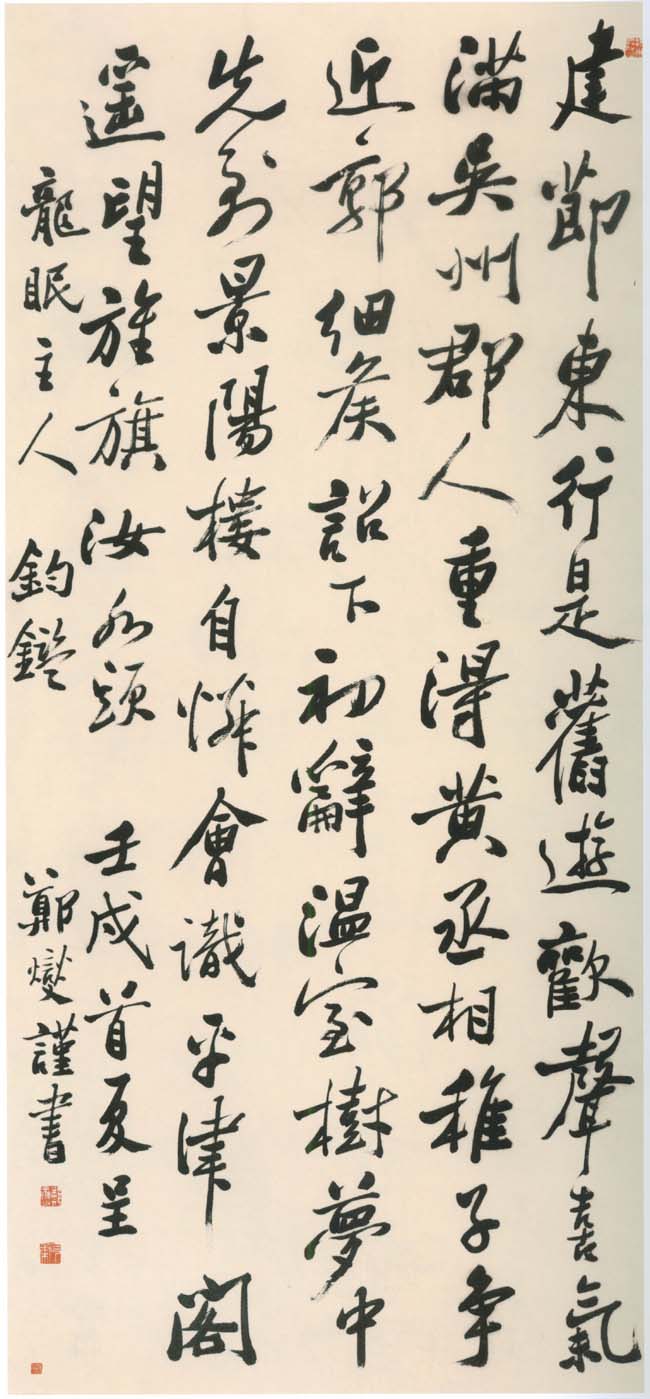 建節東行是舊遊歡聲喜氣
滿吳州郡人重得黃丞相稚子爭
近郭細侯詔下初辭溫室樹夢中
先到景陽樓自憐會識平津閣
遙望旌旗汝水頭 壬戌首夏呈
龍眠主人 鈞鑑 鄭燮謹書